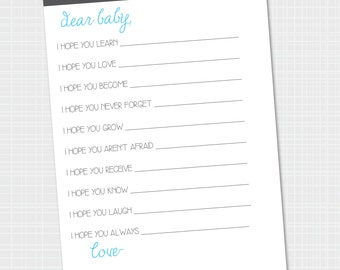 dear baby,
I HOPE YOU LEARN
I HOPE YOU LOVE
I HOPE YOU BECOME
I HOPE YOU NEVER FORGET
I HOPE YOU GROW
I HOPE YOU AREN'T AFRAID
I HOPE YOU RECEIVE
I HOPE YOU KNOW
I HOPE YOU LAUGH
I HOPE YOU ALWAYS
love-